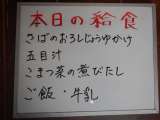 本日の給食
さばのおろしじょうゆかけ
五目汁
こまつ菜の煮びたし
ご飯・牛乳